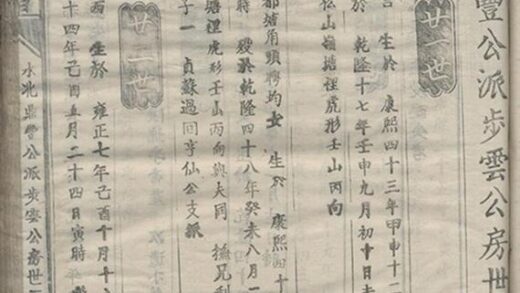 豐公派步雲公房世
廿一世
生於 康熙四十三年甲申十一
於 乾隆十七年壬申九月初十日未
仙山嶺塘裡虎形壬山丙向
都埔角頭 女 生於 康熙四十
時 歿於乾隆四十八年癸未八月一
塘裡虎形壬山丙向與夫同 撫兄利
子一 貞蘇過回 仙公支派
廿二世
生於 雍正七年己酉十月十八
十四年己酉五月二十四日寅時
水北 豐公派步雲公房世